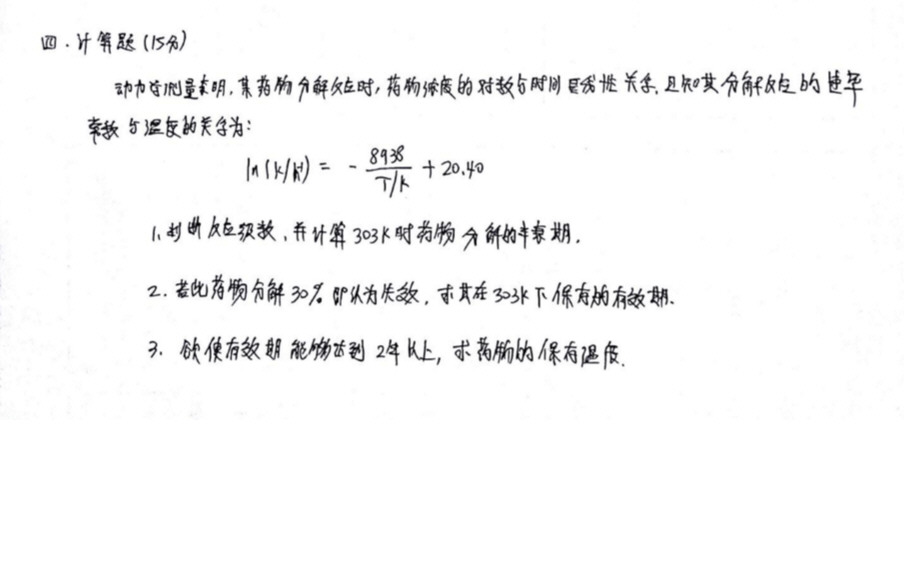 四.计算题(15分)
动力学测量表明,某药物分解反应时,药物浓度的对数与时间呈线性关系,且知其分解反应的速率
常数与温度的关系为:
ln(k/h⁻¹) = - 8938/(T/K) + 20.40
1.判断反应级数,并计算303K时药物分解的半衰期.
2.若此药物分解30%即认为失效,求其在303K下保存的有效期.
3.欲使有效期能够达到2年以上,求药物的保存温度.